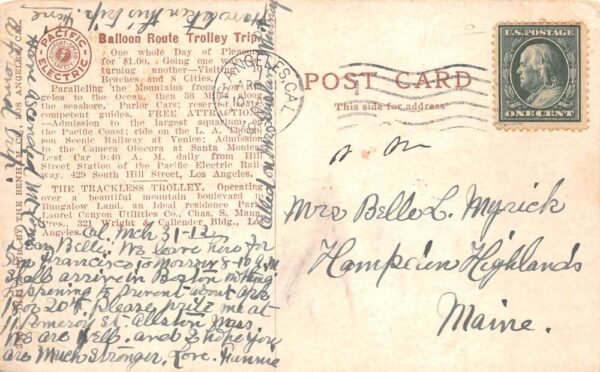 Balloon Route Trolley Trip
PACIFIC
ELECTRIC
One whole Day of Pleasure
for $1.00. Going one way
turning another—Visiting
Beaches and 8 Cities.
Paralleling the Mountains from Los
geles to the Ocean, then 28 Miles along
the seashore. Parlor Cars; reserved
competent guides. FREE ATTRACTIONS
—Admission to the largest aquarium
the Pacific Coast; ride on the L. A. Thomp-
son Scenic Railway at Venice; Admission
to the Camera Obscura at Santa Monica
Last Car 9:40 A. M. daily from Hill
Street Station of the Pacific Electric Rail-
way. 429 South Hill Street, Los Angeles.
THE TRACKLESS TROLLEY. Operating
over a beautiful mountain boulevard
Bungalow Land. Ideal residence Park
Laurel Canyon Utilities Co., Chas. S. Mann,
Pres., 321 Wright & Callender Bldg., Los
Angeles.
POST CARD
This side for address
U.S. POSTAGE
ONE CENT
ANGELES, CAL.
Mrs Belle L. Myrick
Hampden Highlands
Maine.
Cal. Mch 31-12
Dear Belle: We leave here for
San Francisco to-morrow 8-10 A.M.
Shall arrive in Boston nothing
happening to prevent about Apr
18 or 20th. Please write me at
11 Pomeroy St. Allston Mass
We are well, and I hope you
are much stronger. Love. Fannie
have taken this trip.
have ascended Mt